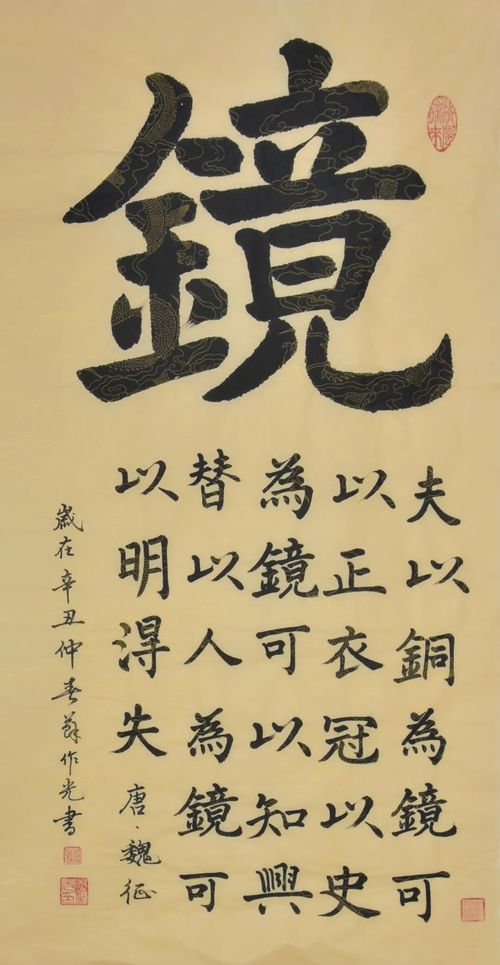 鏡
夫以銅為鏡可
以正衣冠以史
為鏡可以知興
替以人為鏡可
以明淂失 唐、魏征
歲在辛丑仲春蘇作光書